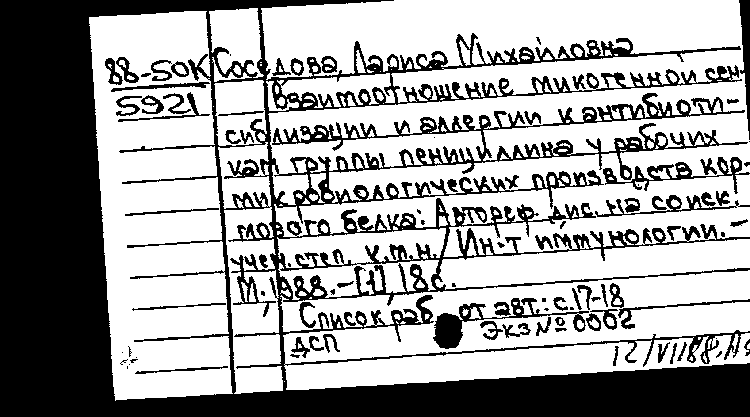 88-50К Соседова, Лариса Михайловна
5921 Взаимоотношение микогенной сен-
сибилизации и аллергии к антибиоти-
кам группы пенициллина у рабочих
микробиологических производств кор-
мового белка: Автореф. дис. на соиск.
учен. степ. к.м.н. / Ин-т иммунологии. –
М., 1988. – [1], 18 с.
Список раб. от авт.: с. 17-18
ДСП Экз № 0002
12/VII88.